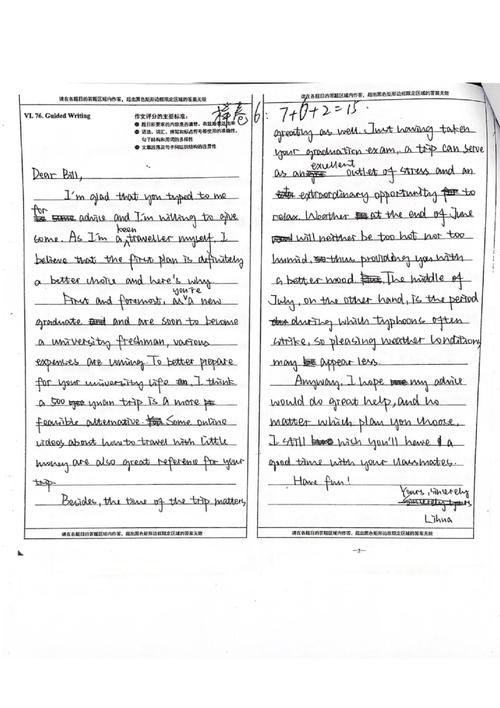 请在各题目的答题区域内作答，超出黑色矩形边框限定区域的答案无效
VI. 76. Guided Writing
作文评分的主要标准：
Dear Bill,
I'm glad that you typed to me
for advice and I'm willing to give
some. As I'm a been traveller myself, I
believe that the first plan is definitely
a better choice and here's why
First and foremost, as you're a new
graduate and are soon to become
a university freshman, various
expenses are coming. To better prepare
for your university life, I think
a 500 yuan trip is a more
feasible alternative. Some online
videos about how to travel with little
money are also great reference for your
trip.
Besides, the time of the trip matters,
请在各题目的答题区域内作答，超出黑色矩形边框限定区域的答案无效
请在各题目的答题区域内作答，超出黑色矩形边框限定区域的答案无效
样卷6: 7+6+2=15.
greatly as well. Just having taken
your graduation exam, a trip can serve
as an excellent outlet of stress and an
extraordinary opportunity to
relax. Weather at the end of June
will neither be too hot nor too
humid, thus providing you with
a better mood. The middle of
July, on the other hand, is the period
during which typhoons often
strike, so pleasing weather conditions
may appear less.
Anyway, I hope my advice
would do great help, and no
matter which plan you choose,
I still wish you'll have a
good time with your classmates.
Have fun!
Yours, sincerely
Lihua
请在各题目的答题区域内作答，超出黑色矩形边框限定区域的答案无效
—2—